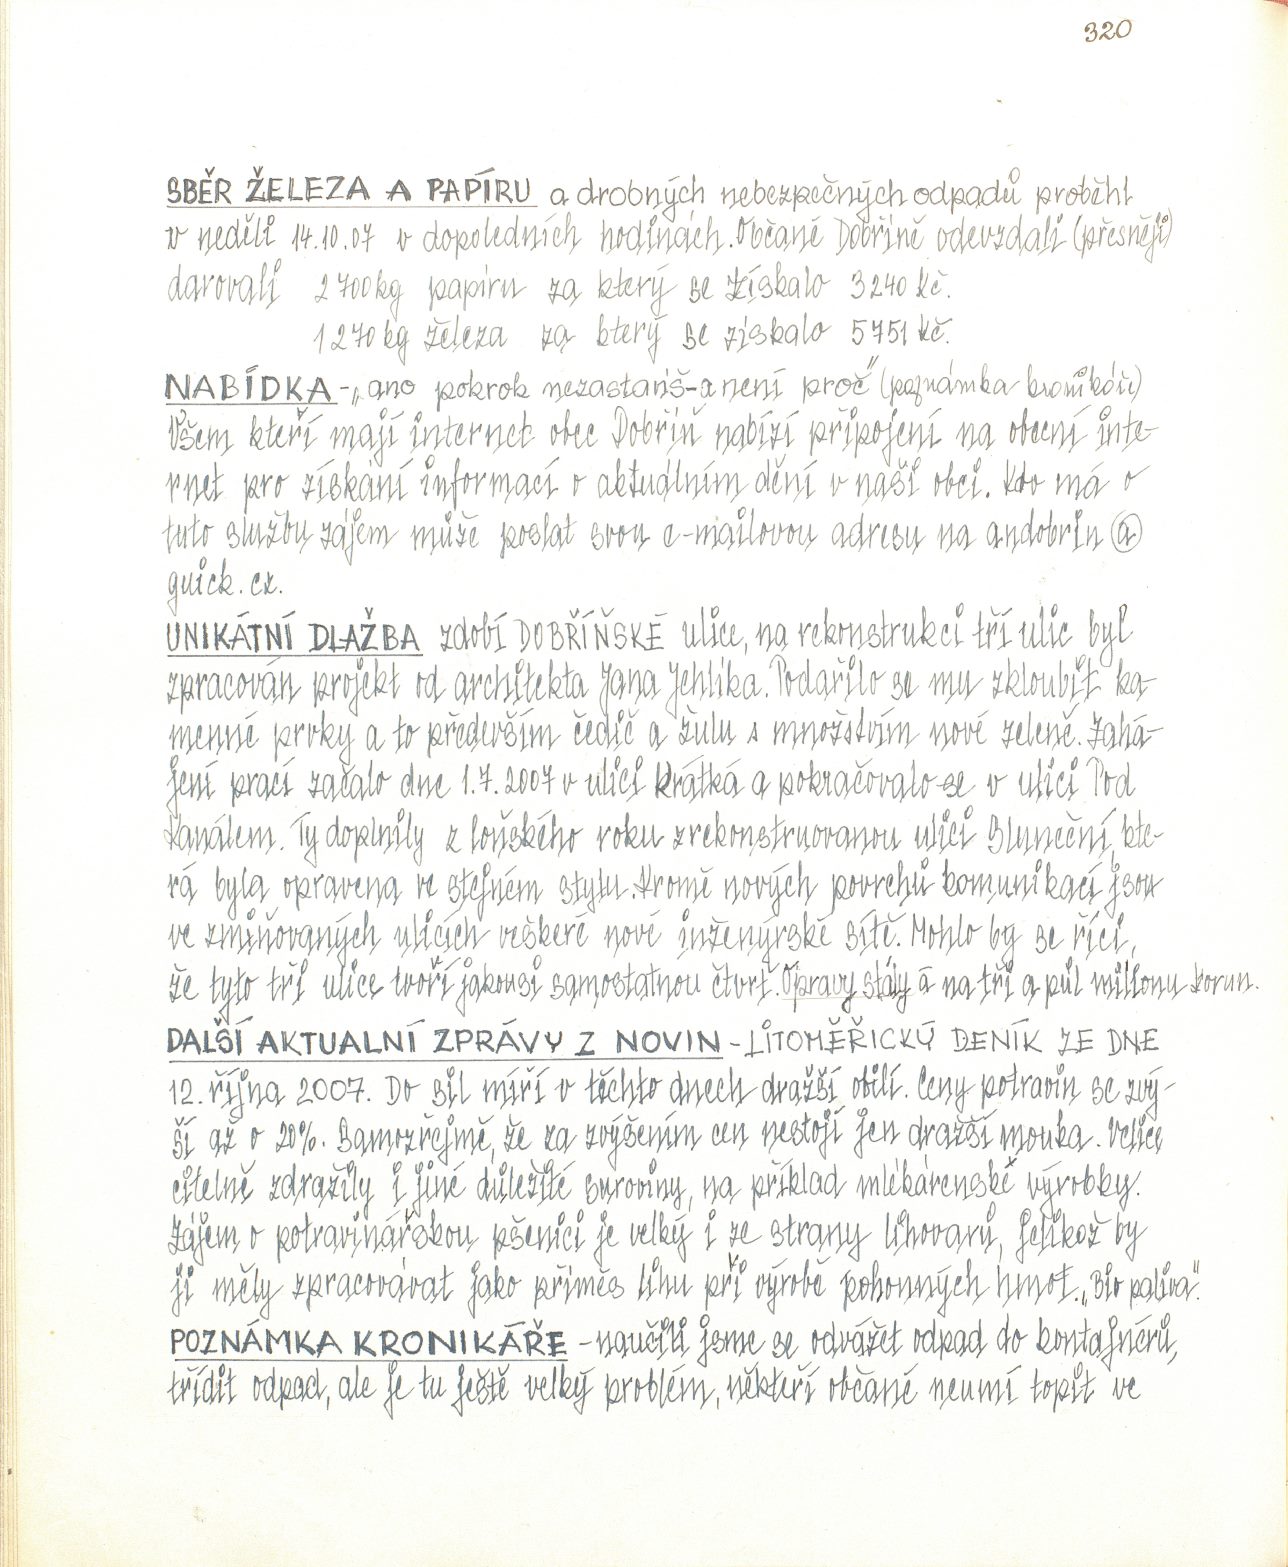 320
SBĚR ŽELEZA A PAPÍRU a drobných nebezpečných odpadů proběhl
v neděli 14.10.07 v dopoledních hodinách. Občané Dobříně odevzdali (přesněji)
darovali 2700kg papíru za který se získalo 3240 Kč.
1270kg železa za který se získalo 5751 Kč.
NABÍDKA - „ano pokrok nezastavíš-a není proč" (poznámka kronikáře)
Všem kteří mají internet obec Dobříň nabízí připojení na obecní inte-
rnet pro získání informací o aktuálním dění v naší obci. Kdo má o
tuto službu zájem může poslat svou e-mailovou adresu na andobrin @
guick.cz.
UNIKÁTNÍ DLAŽBA zdobí DOBŘÍŇSKÉ ulice, na rekonstrukci tří ulic byl
zpracován projekt od architekta Jana Jehlíka. Podařilo se mu zkloubit ka-
menné prvky a to především čedič a žulu s množstvím nové zeleně. Zahá-
jení prací začalo dne 1.7.2007 v ulici Krátká a pokračovalo se v ulici Pod
Kanálem. Ty doplnily z loňského roku zrekonstruovanou ulici Sluneční, kte-
rá byla opravena ve stejném stylu. Kromě nových povrchů komunikací jsou
ve zmiňovaných ulicích veškeré nové inženýrské sítě. Mohlo by se říci,
že tyto tři ulice tvoří jakousi samostatnou čtvrť. Opravy stály á na tři a půl milionu korun.
DALŠÍ AKTUALNÍ ZPRÁVY Z NOVIN - LITOMĚŘICKÝ DENÍK ZE DNE
12. října 2007. Do sil míří v těchto dnech dražší obilí. Ceny potravin se zvý-
ší až o 20%. Samozřejmě, že za zvýšením cen nestojí jen dražší mouka. Velice
citelně zdražily i jiné důležité suroviny, na příklad mlékárenské výrobky.
Zájem o potravinářskou pšenici je velký i ze strany lihovarů, jelikož by
ji měly zpracovávat jako příměs lihu při výrobě pohonných hmot. „Bio paliva".
POZNÁMKA KRONIKÁŘE - naučili jsme se odvážet odpad do kontajnérů,
třídit odpad, ale je tu ještě velký problém, někteří občané neumí topit ve